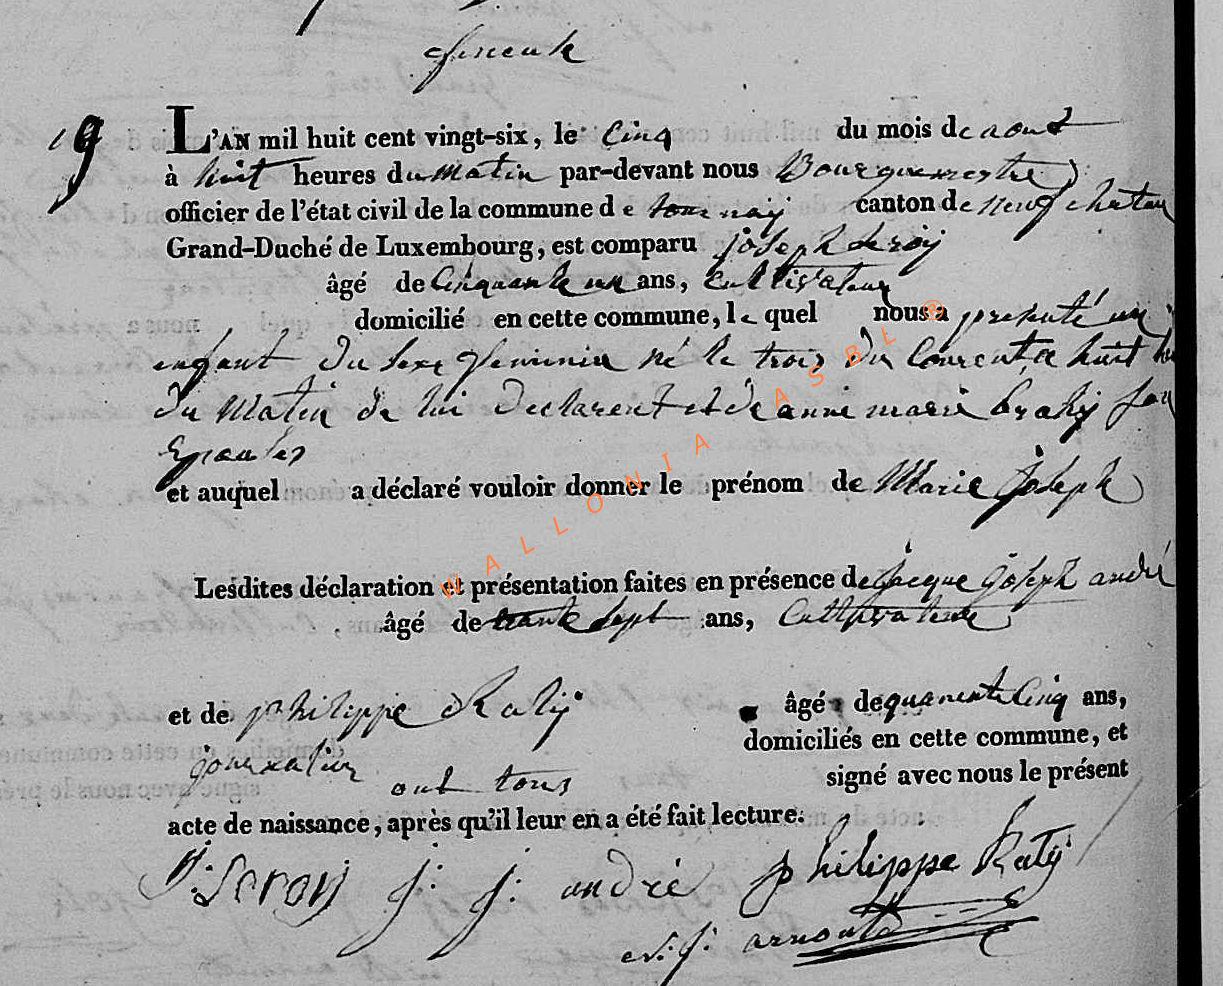 19
L'AN mil huit cent vingt-six, le Cinq du mois de aout
à huit heures du Matin par-devant nous Bourguemestre
officier de l'état civil de la commune de tournaÿ canton de neufchateau
Grand-Duché de Luxembourg, est comparu joseph deroÿ
âgé de Cinquante un ans, cultivateur
domicilié en cette commune, le quel nous a presenté un
enfant du sexe feminin né le trois du Courent a huit
du Matin de lui declarent et de anne marie
Epouse
et auquel a déclaré vouloir donner le prénom de Marie Joseph
Lesdites déclaration et présentation faites en présence de jacque joseph andré
âgé de trante sept ans, Cultivateur
et de philippe Ratÿ âgé de quarente Cinq ans,
domiciliés en cette commune, et
journalier ont tous signé avec nous le présent
acte de naissance, après qu'il leur en a été fait lecture.
j: j: andré philippe Ratÿ
arnould
WALLONIA ASBL ®